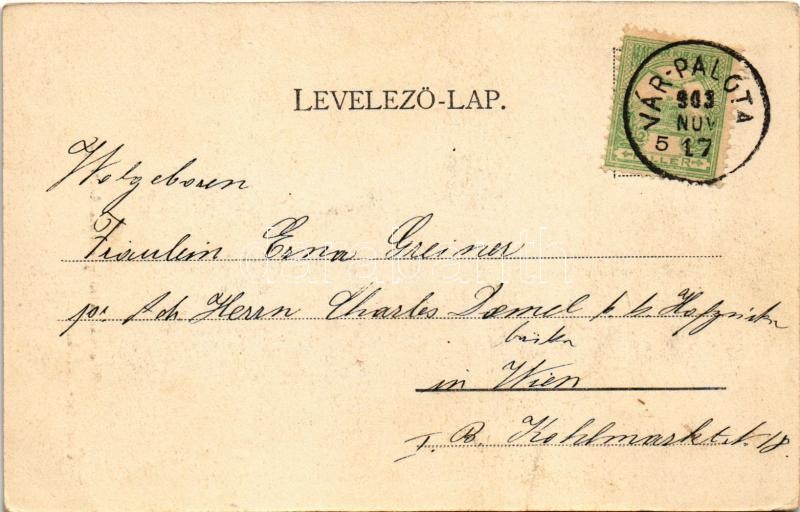 LEVELEZŐ-LAP.
VÁR-PALOTA
903
NOV
5 17
FILLÉR
Wolgeboren
Fräulein Erna Greiner
pr. Adr. Herrn Charles Demel k. k. Hofzucker
bäcker
in Wien
I. B. Kohlmarkt N. 18.
darabanth